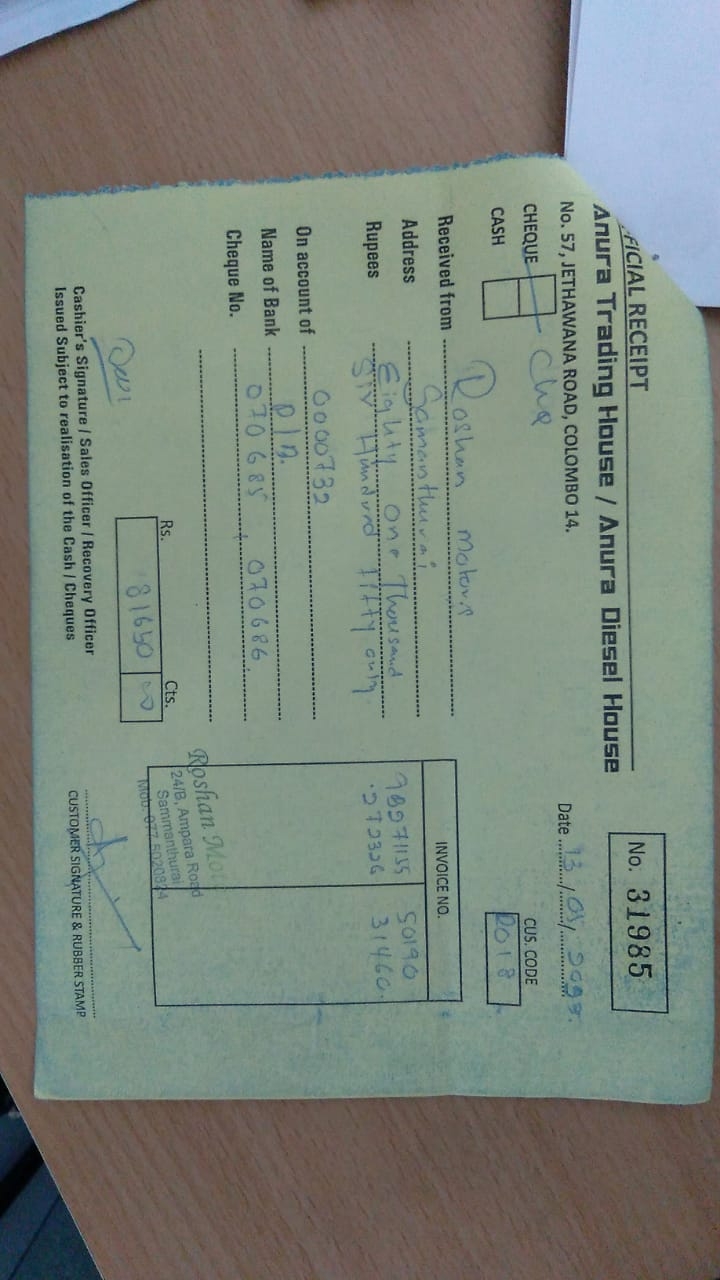 OFFICIAL RECEIPT
No. 31985
Anura Trading House / Anura Diesel House
No. 57, JETHAWANA ROAD, COLOMBO 14.
Date 13/05/
CHEQUE Chq
CASH
CUS. CODE
R018
Received from Roshan Motors
Address Samanthurai
Rupees Eighty One Thousand
Six Hundred Fifty only
On account of 0000732
Name of Bank
Cheque No. 070685 + 070686
INVOICE NO.
50190
31460
Rs. Cts.
81650
Roshan
24/B, Ampara Road
Sammanthurai
Mob: 077 5020824
Cashier's Signature / Sales Officer / Recovery Officer
Issued Subject to realisation of the Cash / Cheques
CUSTOMER SIGNATURE & RUBBER STAMP